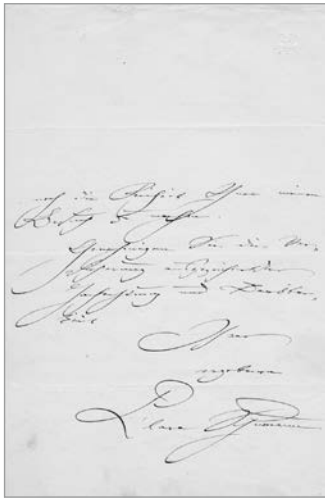 noch die Freiheit Ihnen einen
Besuch zu machen.
Genehmigen Sie die Ver-
sicherung ausgezeichneter
Hochachtung und Dankbar-
keit
Ihrer
ergebenen
Clara Schumann